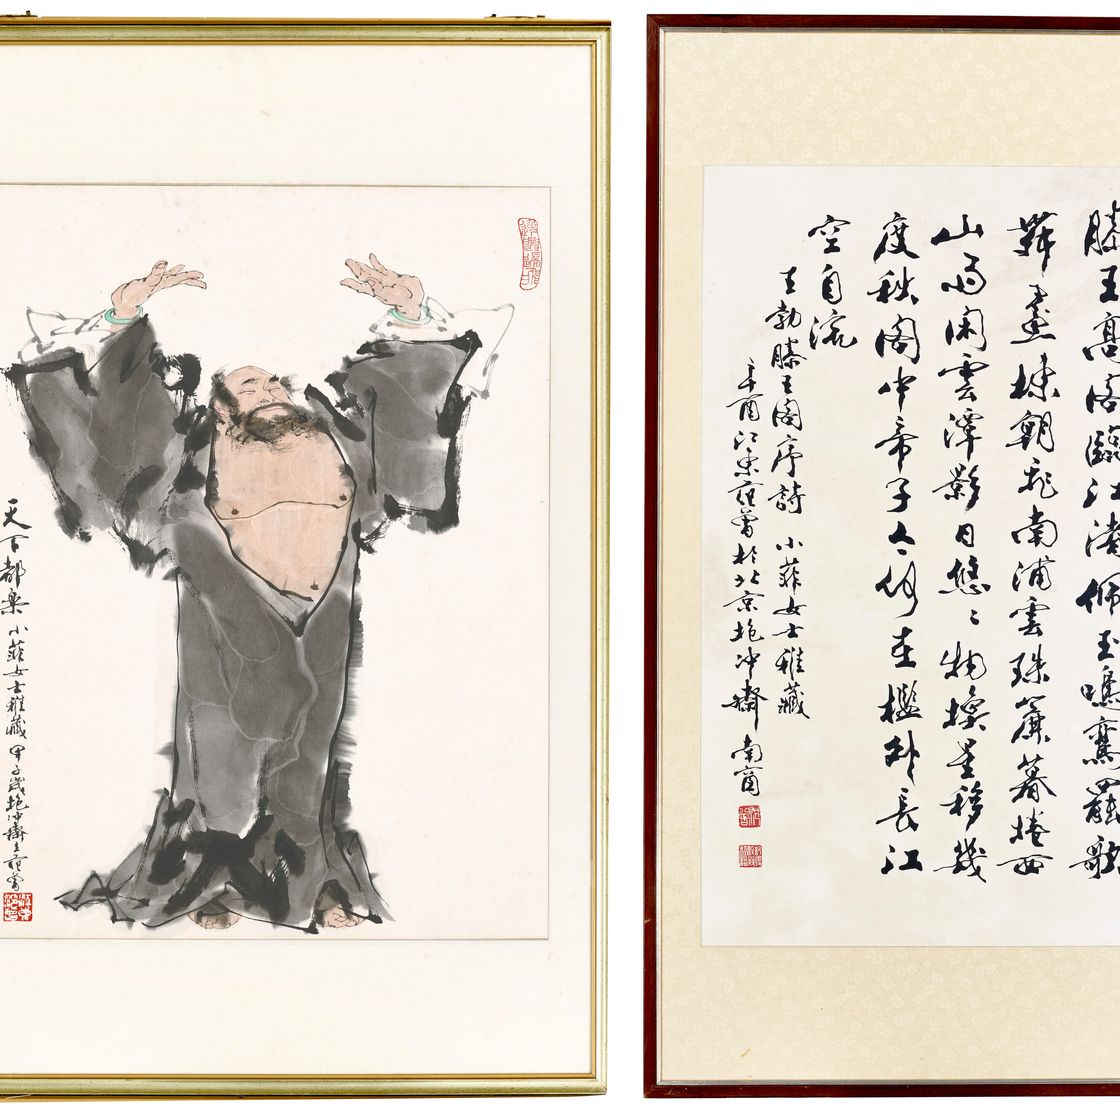 天下都樂 小菲女士雅藏 甲子歲抱冲齋主范曾
滕王高閣臨江渚佩玉鳴鸞罷歌
舞畫棟朝飛南浦雲珠簾暮捲西
山雨闲雲潭影日悠〻物換星移幾
度秋閣中帝子今何在檻外長江
空自流
王勃滕王閣序詩 小菲女士雅藏
辛酉江東范曾於北京抱冲齋南窗